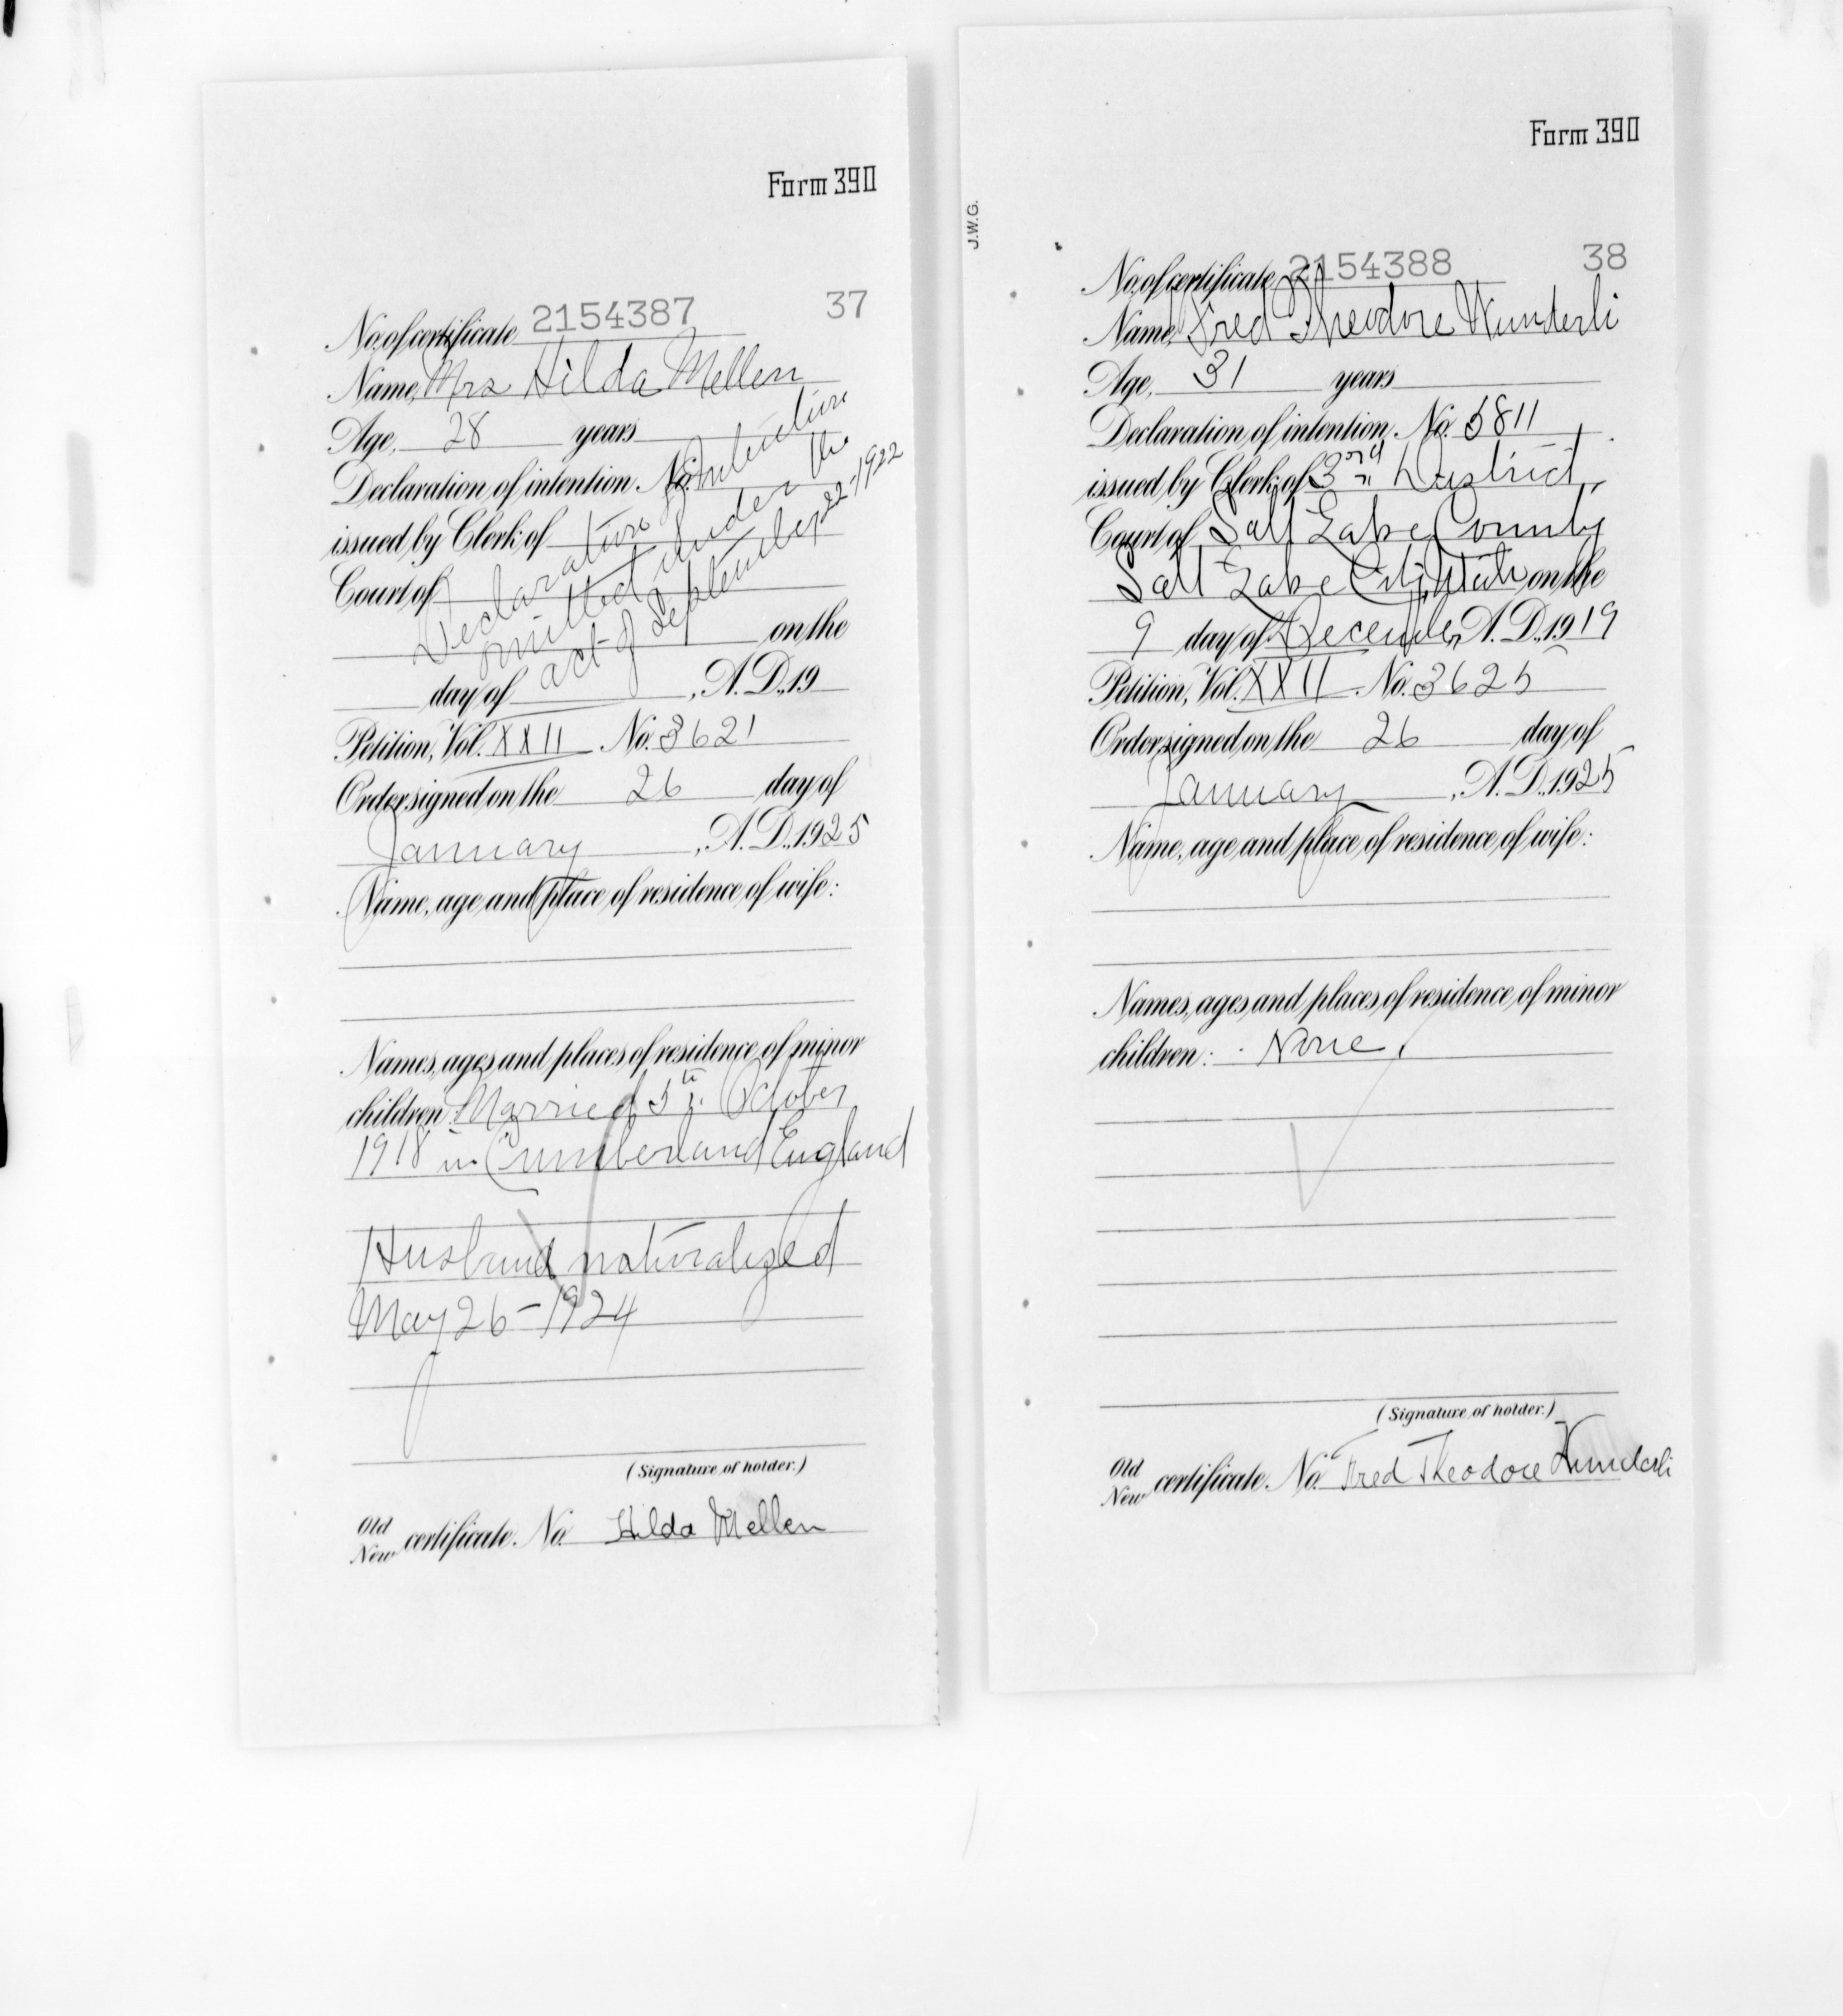 Form 390
No. of certificate 2154387 37
Name, Mrs Hilda Mellen
Age, 28 years
Declaration of intention, No. Declaration of Intention
omitted under the
act of September 22-1922
issued by Clerk of
Court of
on the
day of , A. D., 19
Petition, Vol. XXII No. 3621
Order signed on the 26 day of
January , A. D., 1925
Name, age and place of residence of wife:
Names, ages and places of residence of minor
children: Married 5th October
1918 in Cumberland England
Husband naturalized
May 26-1924
(Signature of holder.)
Old
New certificate, No. Hilda Mellen
J.W.G.
Form 390
No. of certificate 2154388 38
Name, Fred Theodore Wunderli
Age, 31 years
Declaration of intention, No. 5811
issued by Clerk of 3rd District
Court of Salt Lake County
Salt Lake City, Utah on the
9 day of December, A. D., 1919
Petition, Vol. XXII No. 3625
Order signed on the 26 day of
January , A. D., 1925
Name, age and place of residence of wife:
Names, ages and places of residence of minor
children: None.
(Signature of holder.)
Old
New certificate, No. Fred Theodore Wunderli